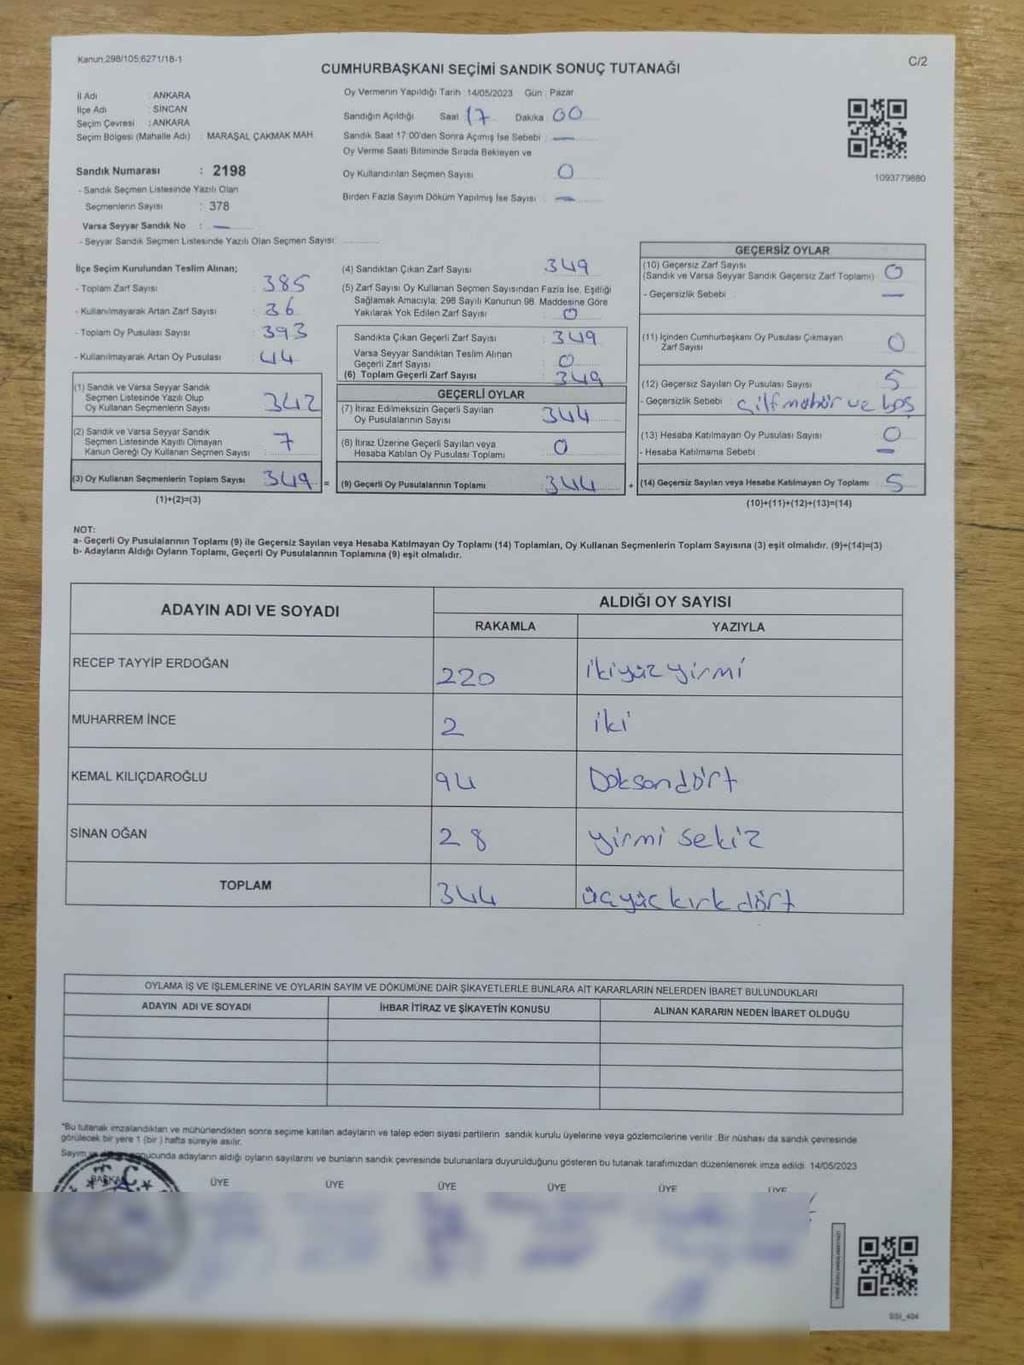 Kanun;298/105;6271/18-1
C/2
CUMHURBAŞKANI SEÇİMİ SANDIK SONUÇ TUTANAĞI
İl Adı : ANKARA
İlçe Adı : SİNCAN
Seçim Çevresi : ANKARA
Seçim Bölgesi (Mahalle Adı) : MARAŞAL ÇAKMAK MAH.
Sandık Numarası : 2198
- Sandık Seçmen Listesinde Yazılı Olan
Seçmenlerin Sayısı : 378
Varsa Seyyar Sandık No : —
- Seyyar Sandık Seçmen Listesinde Yazılı Olan Seçmen Sayısı:
Oy Vermenin Yapıldığı Tarih :14/05/2023 Gün : Pazar
Sandığın Açıldığı Saat 17 Dakika 00
Sandık Saat 17:00'den Sonra Açımış İse Sebebi : —
Oy Verme Saati Bitiminde Sırada Bekleyen ve
Oy Kullandırılan Seçmen Sayısı 0
Birden Fazla Sayım Döküm Yapılmış İse Sayısı —
1093779880
İlçe Seçim Kurulundan Teslim Alınan;
- Toplam Zarf Sayısı 385
- Kullanılmayarak Artan Zarf Sayısı 36
- Toplam Oy Pusulası Sayısı 393
- Kullanılmayarak Artan Oy Pusulası 44
(1) Sandık ve Varsa Seyyar Sandık
Seçmen Listesinde Yazılı Olup
Oy Kullanan Seçmenlerin Sayısı 342
(2) Sandık ve Varsa Seyyar Sandık
Seçmen Listesinde Kayıtlı Olmayan
Kanun Gereği Oy Kullanan Seçmen Sayısı 7
(3) Oy Kullanan Seçmenlerin Toplam Sayısı 349 =
(1)+(2)=(3)
(4) Sandıktan Çıkan Zarf Sayısı 349
(5) Zarf Sayısı Oy Kullanan Seçmen Sayısından Fazla İse, Eşitliği
Sağlamak Amacıyla; 298 Sayılı Kanunun 98. Maddesine Göre
Yakılarak Yok Edilen Zarf Sayısı 0
Sandıkta Çıkan Geçerli Zarf Sayısı 349
Varsa Seyyar Sandıktan Teslim Alınan
Geçerli Zarf Sayısı 0
(6) Toplam Geçerli Zarf Sayısı 349
GEÇERLİ OYLAR
(7) İtiraz Edilmeksizin Geçerli Sayılan
Oy Pusulalarının Sayısı 344
(8) İtiraz Üzerine Geçerli Sayılan veya
Hesaba Katılan Oy Pusulası Toplamı 0
(9) Geçerli Oy Pusulalarının Toplamı 344 +
GEÇERSİZ OYLAR
(10) Geçersiz Zarf Sayısı
(Sandık ve Varsa Seyyar Sandık Geçersiz Zarf Toplamı) 0
- Geçersizlik Sebebi —
(11) İçinden Cumhurbaşkanı Oy Pusulası Çıkmayan
Zarf Sayısı 0
(12) Geçersiz Sayılan Oy Pusulası Sayısı 5
- Geçersizlik Sebebi çift mühür ve boş
(13) Hesaba Katılmayan Oy Pusulası Sayısı 0
- Hesaba Katılmama Sebebi —
(14) Geçersiz Sayılan veya Hesaba Katılmayan Oy Toplamı 5
(10)+(11)+(12)+(13)=(14)
NOT:
a- Geçerli Oy Pusulalarının Toplamı (9) ile Geçersiz Sayılan veya Hesaba Katılmayan Oy Toplamı (14) Toplamları, Oy Kullanan Seçmenlerin Toplam Sayısına (3) eşit olmalıdır. (9)+(14)=(3)
b- Adayların Aldığı Oyların Toplamı, Geçerli Oy Pusulalarının Toplamına (9) eşit olmalıdır.
ADAYIN ADI VE SOYADI
ALDIĞI OY SAYISI
RAKAMLA YAZIYLA
RECEP TAYYİP ERDOĞAN 220 ikiyüz yirmi
MUHARREM İNCE 2 iki
KEMAL KILIÇDAROĞLU 94 Doksandört
SİNAN OĞAN 28 yirmi sekiz
TOPLAM 344 üçyüz kırk dört
OYLAMA İŞ VE İŞLEMLERİNE VE OYLARIN SAYIM VE DÖKÜMÜNE DAİR ŞİKAYETLERLE BUNLARA AİT KARARLARIN NELERDEN İBARET BULUNDUKLARI
ADAYIN ADI VE SOYADI İHBAR İTİRAZ VE ŞİKAYETİN KONUSU ALINAN KARARIN NEDEN İBARET OLDUĞU
"Bu tutanak imzalandıktan ve mühürlendikten sonra seçime katılan adayların ve talep eden siyasi partilerin sandık kurulu üyelerine veya gözlemcilerine verilir .Bir nüshası da sandık çevresinde
görülecek bir yere 1 (bir ) hafta süreyle asılır.
Sayım ve sonucunda adayların aldığı oyların sayılarını ve bunların sandık çevresinde bulunanlara duyurulduğunu gösteren bu tutanak tarafımızdan düzenlenerek imza edildi. 14/05/2023
BAŞKAN ÜYE ÜYE ÜYE ÜYE ÜYE ÜYE
T.C.
SSI_404